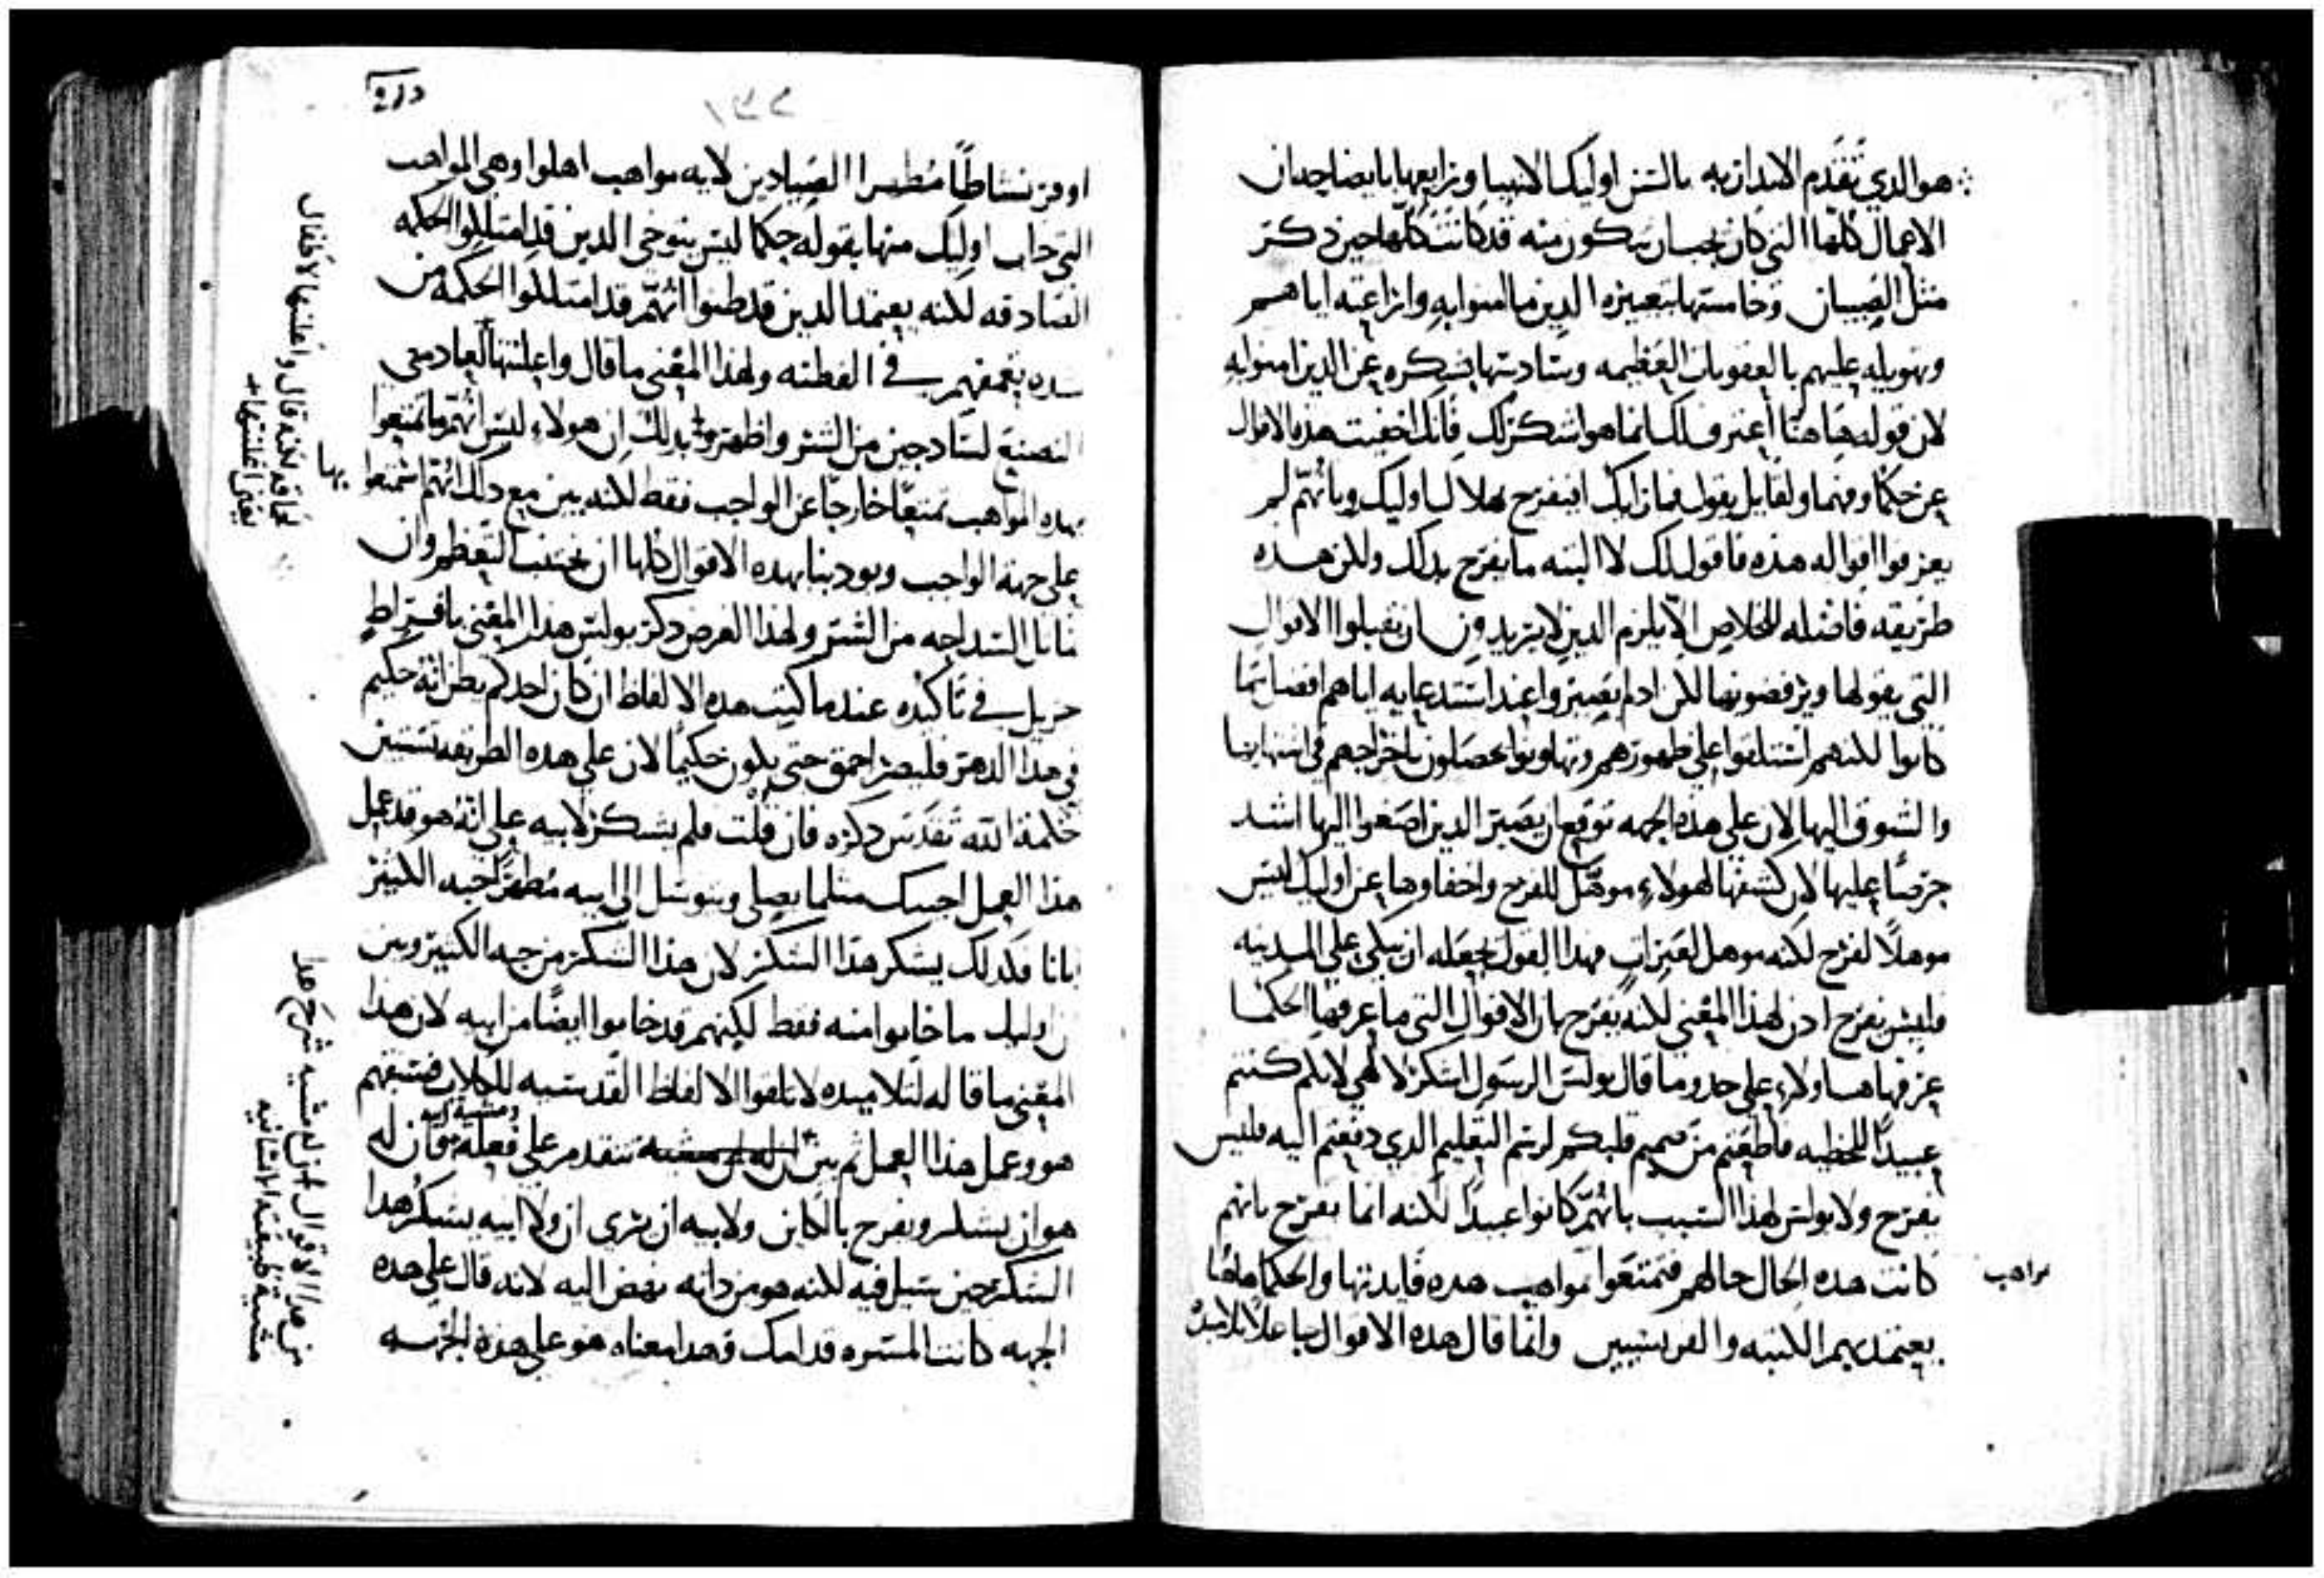 هو الذي تقدم الانذار به بالسن اوليك الانبيا ورابعها بايضاحه ان
الاعمال كلها التي كان يجب ان تكون منه قد كانت كلها حين ذكر
مثل الصبيان وخامستها بتعييره الذين ما امنوا به وانزاعته اياهم
وتهويله عليهم بالعقوبات العظيمه وسادستها بشكره عن الذين امنوا به
لان قوله هاهنا اعترف لك انما هو اشكر لك فانك اخفيت هذه الاقوال
عن حكما وفهما ولقايل يقول فما رايك افيفرح بهلاك اوليك وبانهم لم
يعرفوا اقواله هذه فاقول لك لا البته ما يفرح بذلك ولكن هذه
طريقه فاضله للخلاص الا يلزم الذين لا يريدون ان يقبلوا الاقوال
التي يقولها ويرفضونها لكن اذ لم يصيروا عند استدعايه اياهم افضل مما
كانوا لكنهم استلقوا على ظهورهم وتهاونوا يحصلون باخراجهم في اشتهايها
والشوق اليها لان على هذه الجهه توقع ان يصير الذين اصغوا اليها اشد
حرصا عليها لان كشفها لهولاء موهل للفرح واخفاوها عن اوليك ليس
موهلا لفرح لكنه موهل لعبرات فهذا القول يجعله ان يبكي على المدينه
فليس يفرح اذن لهذا المعنى لكنه يفرح بان الاقوال التي ما عرفها الحكما
عرفها هاولاء على حدو ما قال بولس الرسول اشكر لالهي لانكم كنتم
عبيدا للخطيه فاطعتم من صميم قلبكم لرسم التعليم الذي دفعتم اليه فليس
يفرح ولا بولس لهذا السبب بانهم كانوا عبيدا لكنه انما يفرح بانهم
كانت هذه الحال حالهم فتمتعوا بمواهب هذه فايدتها والحكما هاهنا
يعتمد بهم الكتبه والفريسيين وانما قال هذه الاقوال جاعلا تلاميذه
مواهب
اوفر نشاطا مظهرا الصيادين لايه مواهب اهلوا وهي المواهب
التي خاب اوليك منها بقوله حكما ليس يتوخى الذين قد امتلكوا الحكمه
الصادقه لكنه يعتمد الذين قد ظنوا انهم قد امتلكوا الحكمه من
بتعمقهم في الفطنه ولهذا المعنى ما قال واعلنتها لعادمي
التصنع لساذجين من الشر واظهر بذلك ان هولاء ليس انهم ما تمتعوا
بها
بهذه المواهب تمتعا خارجا عن الواجب فقط لكنه بين مع ذلك انهم تمتعوا
على جهة الواجب ويودبنا بهذه الاقوال كلها ان نجتنب التعظم وان
السداجه من الشر ولهذا الغرض ذكر بولس هذا المعنى بافراط
جزيل في تاكيده عندما كتب هذه الالفاظ ان كان احدكم يظن انه حكيم
في هذا الدهر فليصر احمق حتى يكون حكيما لان على هذه الطريقه تستبين
حكمة الله تقدس ذكره فان قلت فلم يشكر لابيه على انه هو قد عمل
هذا العمل اجبتك مثلما يصلي ويتوسل الى ابيه مظهرا حبه الكثير
ايانا فكذلك يشكر هذا الشكر لان هذا الشكر من حبه الكثير وبين
ان اوليك ما خابوا منه فقط لكنهم قد خابوا ايضا من ابيه لان هذا
المعنى ما قاله لتلاميذه لا تلقوا الالفاظ القدسيه للكلاب فسبقهم
هو وعمل هذا العمل ثم بين تتقدم على فعله فان له
ومشية ابيه
هو ان يشكر ويفرح بالكاين ولابيه ان يرى ان ولا ابيه يشكر هذا
الشكر حين سيل فيه لكنه هو من ذاته نهض اليه لانه قال على هذه
الجهه كانت المسره قدامك وهذا معناه هو على هذه الجهه
لانه قال واعلنتها لاطفال
يعني اعلنتها
من هذا الاقوال له مشيه شرح هذا
مشية طبيعته الانسانيه